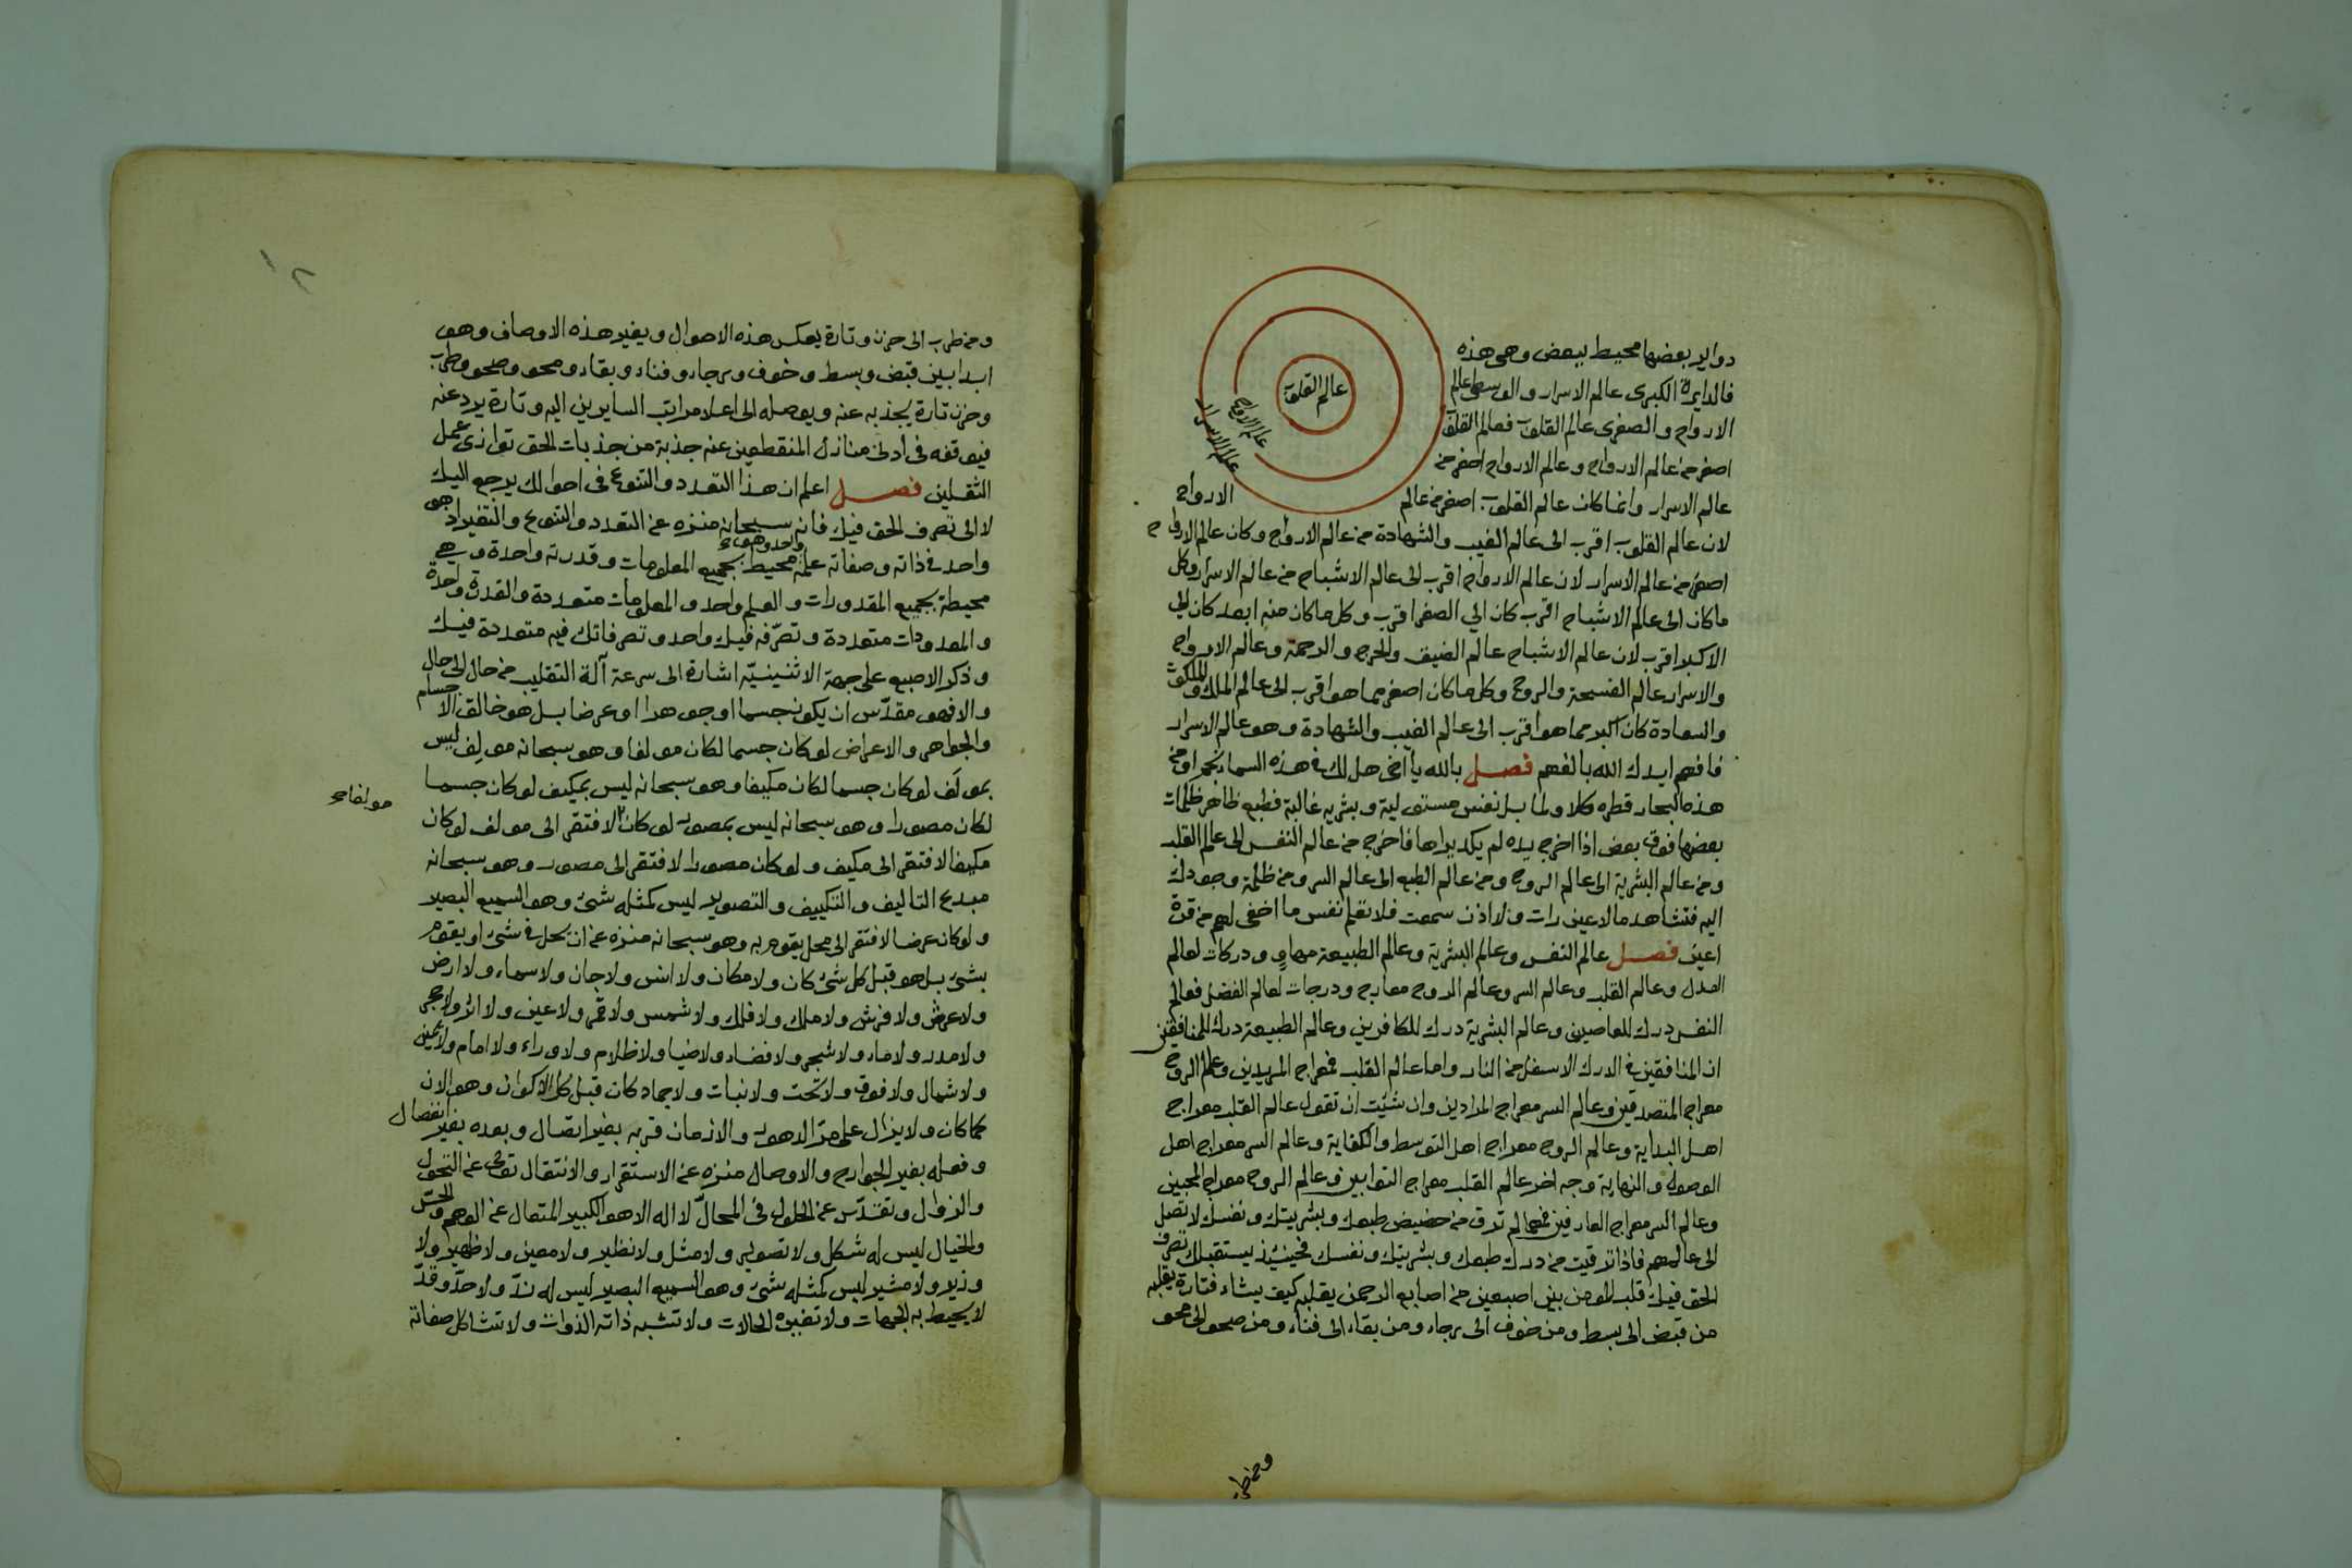 دواير بعضها محيط ببعض وهى هذه
فالدايرة الكبرى عالم الاسرار والوسطى عالم
الارواح والصغرى عالم القلوب فعالم القلوب
اصغر من عالم الارواح وعالم الارواح اصغر من
عالم الاسرار وانما كان عالم القلوب اصغر من عالم الارواح
عالم القلوب
عالم الارواح
عالم الاسرار
لان عالم القلوب اقرب الى عالم الغيب والشهادة من عالم الارواح وكان عالم الارواح
اصغر من عالم الاسرار لان عالم الارواح اقرب الى عالم الاشباح من عالم الاسرار وكل
ما كان الى عالم الاشباح اقرب كان الي الصغر اقرب وكل ما كان منه ابعد كان الي
الاكبر اقرب لان عالم الاشباح عالم الضيق والحرج والرحمة وعالم الارواح
والاسرار عالم الفسيحة والروح وكل ما كان اصغر مما هو اقرب الى عالم الملك والملكوت
والسعادة كان اكبر مما هو اقرب الى عالم الغيب والشهادة وهو عالم الاسرار
فافهم ايدك الله بالفهم فصل بالله يا اخى هل لك فى هذه السما نجم او من
هذه البحار قطره كلا ولما بل نفس مستولية وبشريه غالبة فطبع ظاهر ظلمات
بعضها فوق بعض اذا اخرج يده لم يكد يراها فاخرج من عالم النفس الى عالم القلب
ومن عالم البشرية الى عالم الروح ومن عالم الطبع الى عالم السر ومن ظلمة وجودك
اليه فتشاهد ما لا عين رات ولا اذن سمعت فلا تعلم نفس ما اخفى لهم من قرة
اعين فصل عالم النفس وعالم البشرية وعالم الطبيعة مهاوٍ ودركات لعالم
العدل وعالم القلب وعالم السر وعالم الروح معارج ودرجات لعالم الفضل فعالم
النفس درك للعاصين وعالم البشرية درك للكافرين وعالم الطبيعة درك للمنافقين
ان المنافقين فى الدرك الاسفل من النار واما عالم القلب فمعراج المريدين وعالم الروح
معراج المتصدقين وعالم السر معراج المرادين وان شئت ان تقول عالم القلب معراج
اهل البداية وعالم الروح معراج اهل التوسط والكفاية وعالم السر معراج اهل
الوصول والنهاية وجه اخر عالم القلب معراج التوابين وعالم الروح معراج المحبين
وعالم السر معراج العارفين فمهما لم ترق من حضيض طبعك وبشريتك ونفسك لا تصل
الى عالمهم فاذا ترقيت من درك طبعك وبشريتك ونفسك فحينئذ يستقبلك تصرف
الحق فيك قلب المومن بين اصبعين من اصابع الرحمن يقلبه كيف يشاء فتارة يقلبه
من قبض الى بسط ومن خوف الى رجاء ومن بقاء الى فناء ومن صحو الى محو
ومن طر
ومن طرب الى حزن وتارة يعكس هذه الاحوال ويغير هذه الاوصاف وهو
ابدا بين قبض وبسط وخوف ورجاء وفناء وبقاء ومحو وصحو وطرب
وحزن تارة يجذبه عنه ويوصله الى اعلا مراتب السايرين اليه وتارة يرد عنه
فيوقفه فى ادنى منازل المنقطعين عنه جذبة من جذبات الحق توازى عمل
الثقلين فصل اعلم ان هذا التعدد والتنوع فى احوالك يرجع اليك
لا الى تصرف الحق فيك فانه سبحانه منزه عن التعدد والتنوع والتغير اذ هو
واحد فى ذاته وصفاته علمه واحد وهو محيط بجميع المعلومات وقدرته واحدة وهى
محيطة بجميع المقدورات والعلم واحد والمعلومات متعددة والقدرة واحدة
والمعدودات متعددة وتصرّفه فيك واحد وتصرفاتك فيه متعددة فيك
وذكر الاصبع على جهة الاثنينيّة اشارة الى سرعة آلة التقليب من حال الى حال
والا فهو مقدّس ان يكون جسما او جوهرا او عرضا بل هو خالق الاجسام
والجواهر والاعراض لو كان جسما لكان مولفا وهو سبحانه مولِف ليس
بمولَف لو كان جسما لكان مكيفا وهو سبحانه ليس بمكيف لو كان جسما
لكان مصورا وهو سبحانه ليس بمصور لو كان لافتقر الى مولف لو كان
مولفا صح
مكيفا لافتقر الى مكيف ولو كان مصورا لافتقر الى مصور وهو سبحانه
مبدع التاليف والتكييف والتصوير ليس كمثله شئ وهو السميع البصير
ولو كان عرضا لافتقر الى محل يقوم به وهو سبحانه منزه عن ان يحل فى شئ او يقوم
بشئ بل هو قبل كل شئ كان ولا مكان ولا انس ولا جان ولا سماء ولا ارض
ولا عرش ولا فرش ولا ملك ولا فلك ولا شمس ولا قمر ولا عين ولا اثر ولا حجر
ولا مدر ولا ماء ولا شجر ولا فضاء ولا ضيا ولا ظلام ولا وراء ولا امام ولا يمين
ولا شمال ولا فوق ولا تحت ولا نبات ولا جماد كان قبل كل الاكوان وهو الان
كما كان ولا يزال على مرّ الدهور والازمان قربه بغير اتصال وبعده بغير انفصال
وفعله بغير الجوارح والاوصال منزه عن الاستقرار والانتقال تعالى عن التحول
والزوال وتقدّس عن الحلول فى المحالّ لا اله الا هو الكبير المتعال عن الوهم والحسّ
والخيال ليس له شكل ولا تصوير ولا مثل ولا نظير ولا معين ولا ظهير ولا
وزير ولا مشير ليس كمثله شئ وهو السميع البصير ليس له ندّ ولا حدّ وقدّ
لا يحيط به الجهات ولا تغييره الحالات ولا تشبه ذاته الذوات ولا تشاكل صفاته